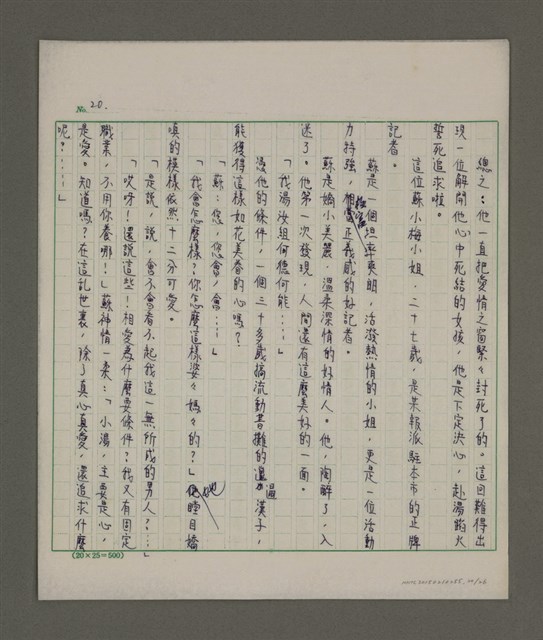 No. 20.
總之:他一直把愛情之窗緊々封死了的。這回難得出
現一位解開他心中死結的女孩,他是下定決心,赴湯蹈火
誓死追求啦。
這位蘇小梅小姐,二十七歲,是某報派駐本市的正牌
記者。
蘇是個坦率爽朗,活潑熱情的小姐,更是一位活動
力特強,極富正義感的好記者。
蘇是嬌小美麗,溫柔深情的好情人。他,陶醉了,入
迷了。他第一次發現,人間還有這麼美好的一面。
「我湯汝組何德何能……」
憑他的條件,一個三十多歲搞流動書攤的邋遢漢子,
能獲得這樣如花美眷的心嗎?
「蘇:您,您會,會…」
「我會怎麼樣?你怎麼這樣婆々媽々的?」她瞳目嬌
嗔的模樣依然十二分可愛。
「是說,說,會不會看不起我這一無所成的男人?……」
「哎呀!還說這些!相愛為什麼要條件?我又有固定
職業,不用你養哪!」蘇神情一柔:「小湯,主要是心,
是愛。知道嗎?在這乱世裏,除了真心真愛,還追求什麼
呢?……」
(20×25=500)